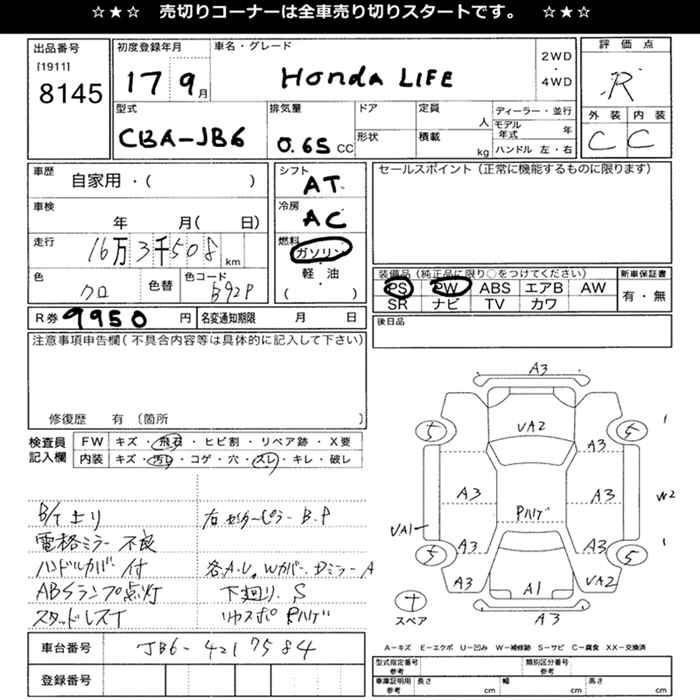 ☆★☆ 売切りコーナーは全車売り切りスタートです。 ☆★☆
出品番号
[1911]
8145
初度登録年月
17 9月
車名・グレード
Honda LIFE
2WD
4WD
評価点
R
外装 内装
C C
型式
CBA-JB6
排気量
0.65 CC
ドア
形状
定員
人
積載
kg
ディーラー・並行
モデル年式 年
ハンドル 左・右
車歴
自家用・( )
車検
年 月( 日)
走行
16万3千508 km
色
クロ
色替
色コード
B92P
シフト
AT
冷房
AC
燃料
ガソリン
軽・油
( )
セールスポイント(正常に機能するものに限ります)
装備品(純正品に限り○をつけてください)
PS PW ABS エアB AW
SR ナビ TV カワ
新車保証書
有・無
R券 9950 円
名変通知期限 月 日
後日品
注意事項申告欄(不具合内容等は具体的に記入して下さい)
修復歴 有〔箇所 〕
検査員記入欄
FW キズ・飛石・ヒビ割・リペア跡・X要
内装 キズ・汚レ・コゲ・穴・スレ・キレ・破レ
B/Tより
電格ミラー不良
ハンドルカバー付
ABSランプ点灯
スタッドレスT
右センターピラーB.P
各A.U.Wカバー.Dミラー A
下廻り.S
リヤスポ Pハゲ
A3
VA2
5 5
A3
A3 A3
W2
Pハゲ
VA1
A3 A3
5 5
A3 A1 VA2
A3
テ
スペア
A-キズ E-エクボ U-凹み W-補修跡 S-サビ C-腐食 XX-交換済
車台番号 JB6-4217584
登録番号
型式指定番号
参考
類別区分番号
参考
車庫証明用
参考
長さ cm 幅 cm 高さ cm